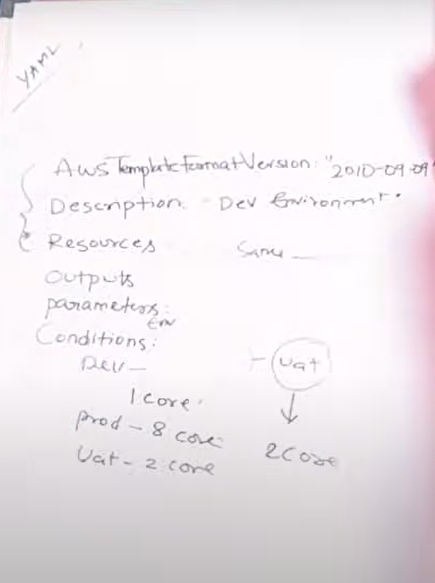 YAML
AwsTemplateFormatVersion: "2010-09-09"
Description. Dev Environment.
Resources Same
Outputs
parameters:
Env
Conditions:
Dev - Uat
1 core.
prod - 8 core
Uat - 2 core 2 Core